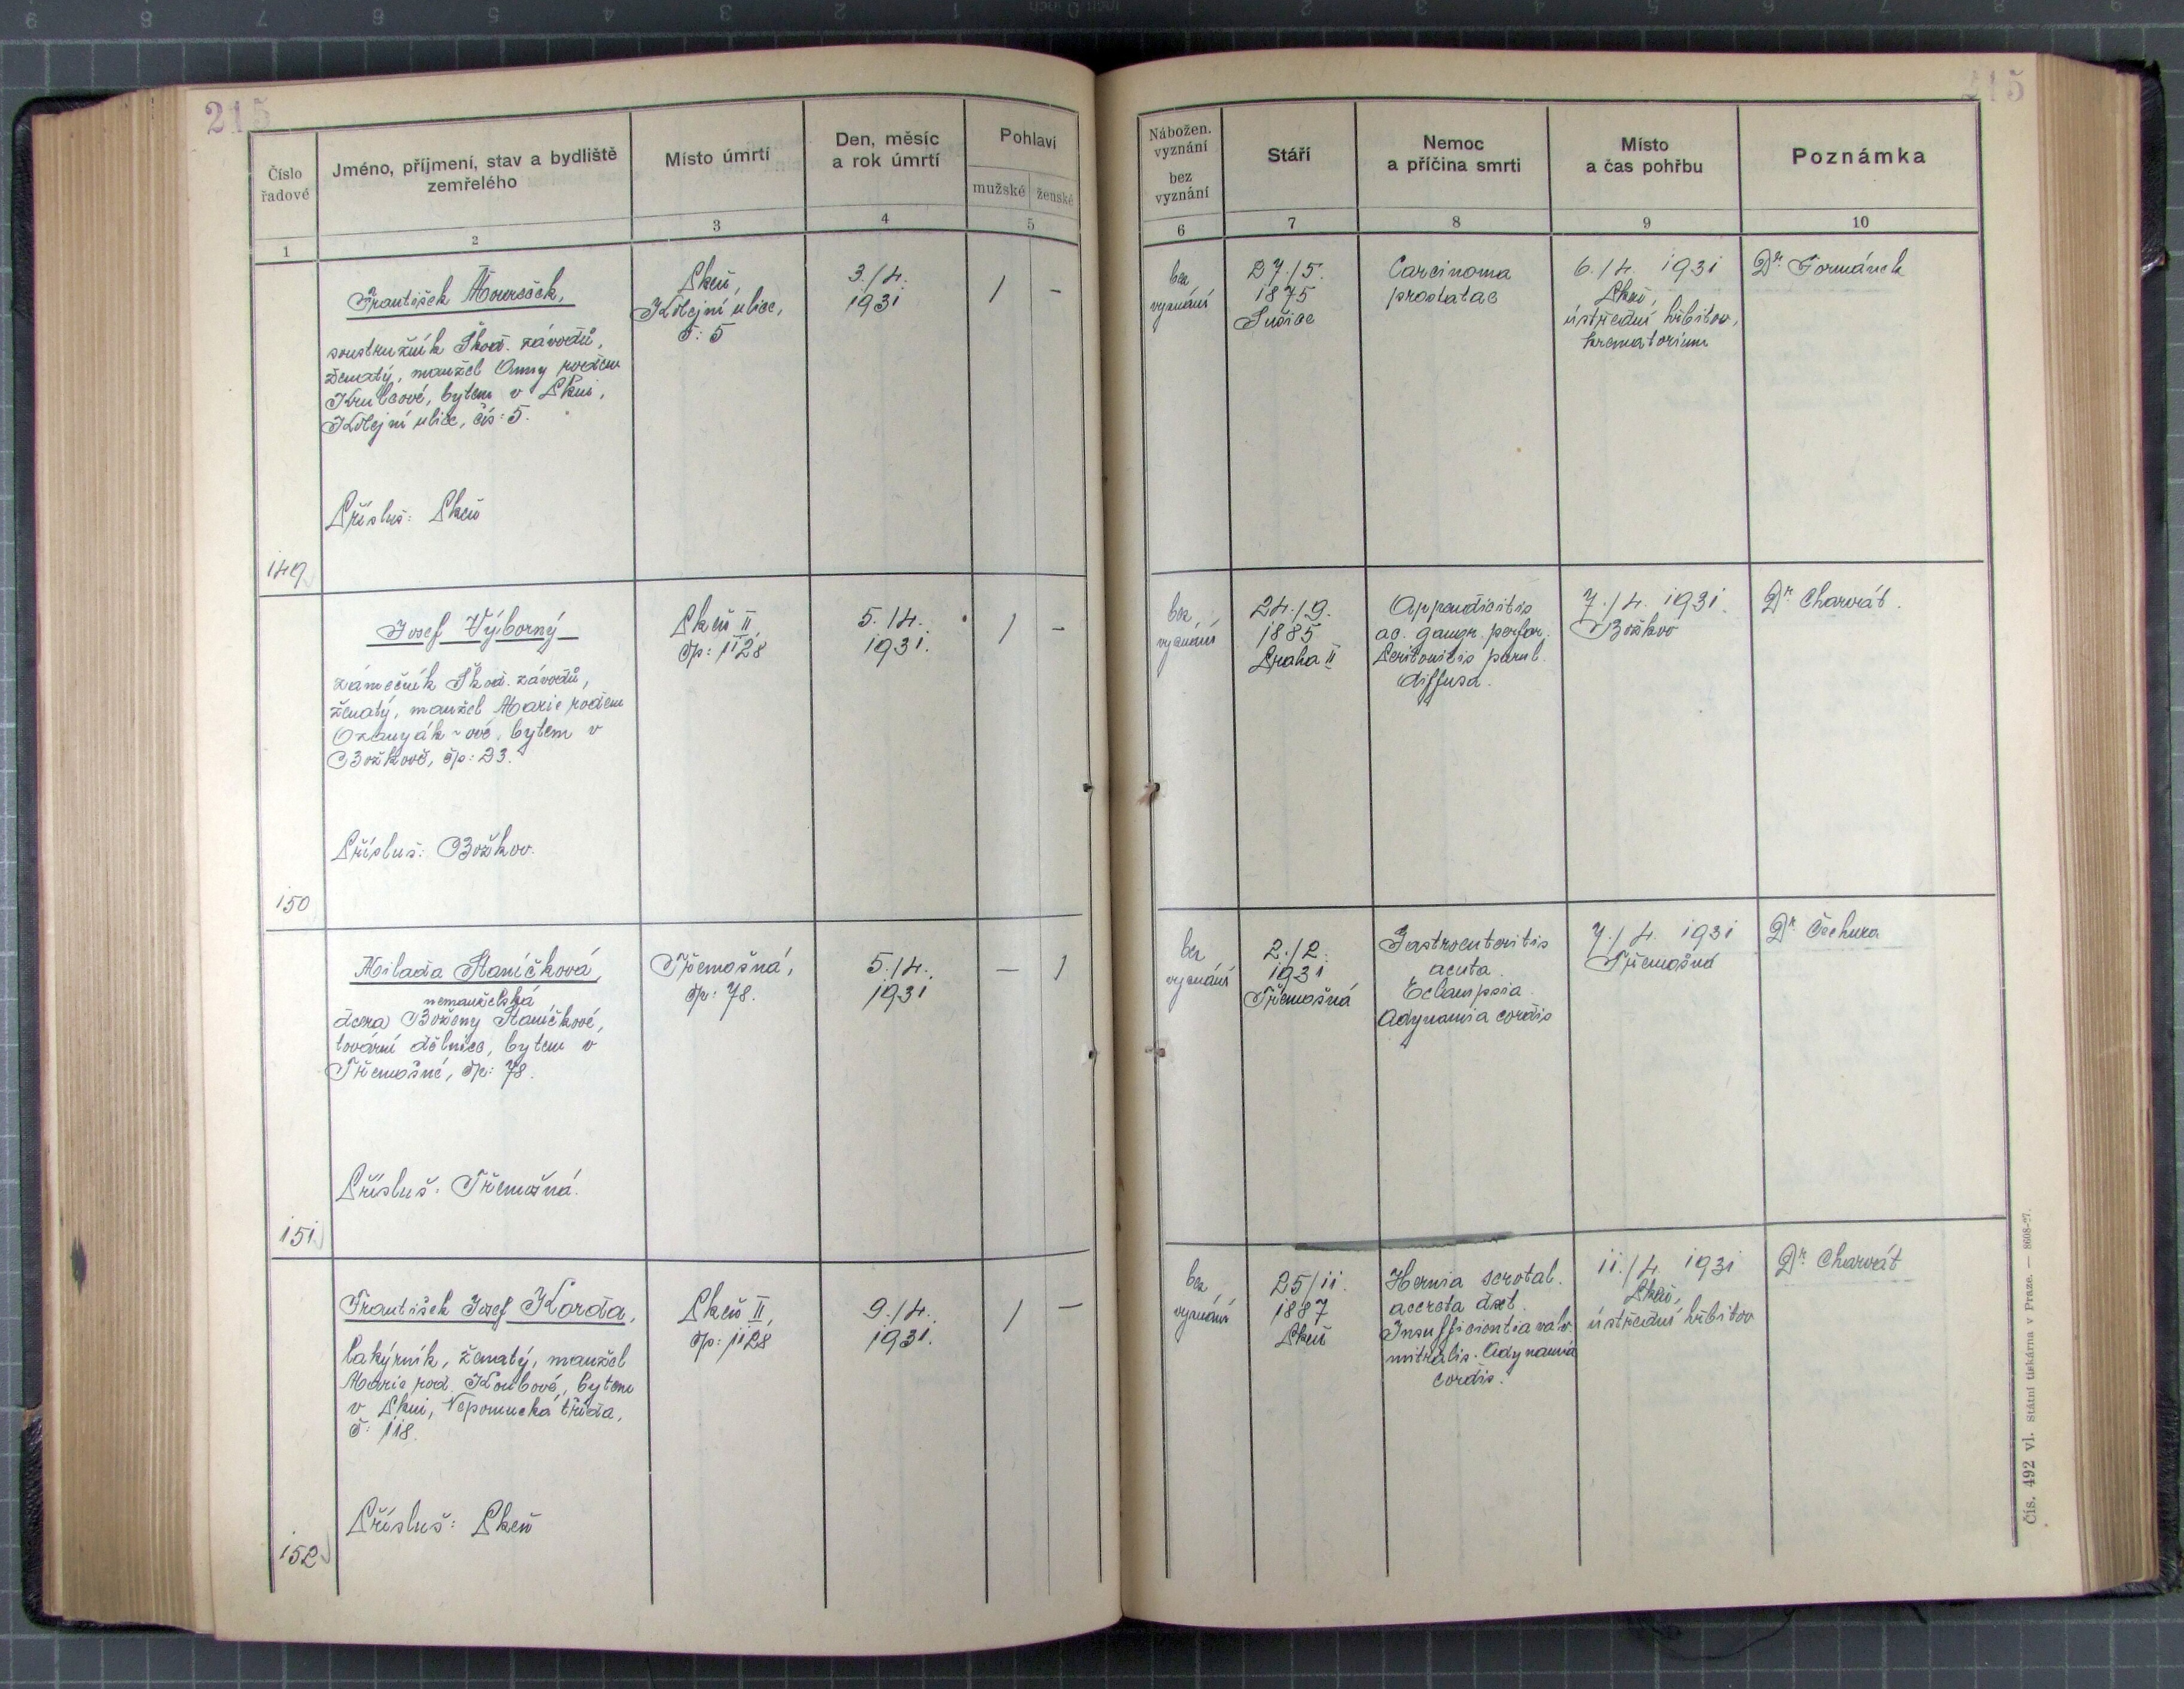 215
215
Číslo řadové
Jméno, příjmení, stav a bydliště zemřelého
Místo úmrtí
Den, měsíc a rok úmrtí
Pohlaví
mužské
ženské
Nábožen. vyznání
bez vyznání
Stáří
Nemoc a příčina smrti
Místo a čas pohřbu
Poznámka
1
2
3
4
5
6
7
8
9
10
149
František
soustružník Škod. závodů,
ženatý, manžel Anny rozen
bytem v Plzni,
Kolejní ulice, čís: 5.
Přísluš: Plzeň
Plzeň,
Kolejní ulice,
č: 5
3./4.
1931
/
-
bez
vyznání
27./5.
1875
Sušice
Carcinoma
prostatae
6./4. 1931
Plzeň,
ústřední hřbitov,
krematorium
Dr. Formánek
150
Josef Výborný
zámečník Škod. závodů,
ženatý, manžel Marie rozen
bytem v
Božkově, čp: 23.
Přísluš: Božkov.
Plzeň II
čp: 1128
5./4.
1931.
/
-
bez,
vyznání
24./9.
1885
Praha II
Appendicitis
ac. gangr. perfor.
Peritonitis purul.
diffusa.
7./4. 1931.
Božkov
Dr. Charvát.
151
Milada Staníčková,
nemanželská
dcera Boženy Staníčkové,
tovární dělnice, bytem v
Třemošné, čp: 78.
Přísluš: Třemošná.
Třemošná,
čp: 78.
5./4.
1931
-
1
bez
vyznání
2./2.
1931
Třemošná
Gastroenteritis
acuta.
Eclampsia.
Adynamia cordis
7./4. 1931
Třemošná
Dr. Čechura
152
František Josef Korda,
lakýrník, ženatý, manžel
Marie roz. Koubové, bytem
v Plzni, Nepomucká třída,
č: 118.
Přísluš: Plzeň
Plzeň II,
čp: 1128
9./4.
1931.
/
-
bez,
vyznání
25/11.
1887
Plzeň
Hernia scrotal.
accreta dext.
Insufficientia valv.
mitralis. Adynamia
cordis.
11./4. 1931
Plzeň,
ústřední hřbitov
Dr. Charvát
Čís. 492 vl. Státní tiskárna v Praze. — 8608-27.